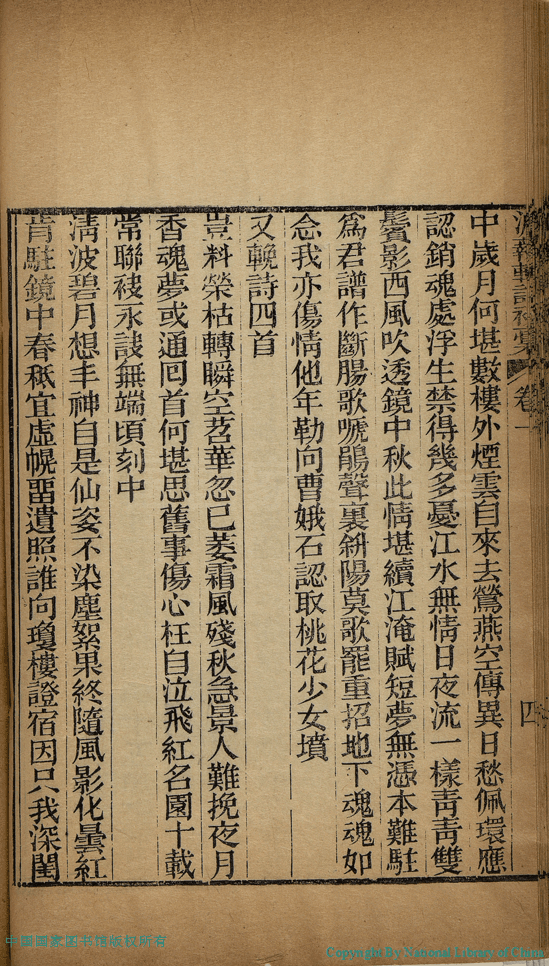 卷一
四
中歲月何堪數樓外煙雲自來去鶯燕空傳異日愁佩環應
認銷魂處浮生禁得幾多憂江水無情日夜流一樣靑靑雙
鬢影西風吹透鏡中秋此情堪續江淹賦短夢無憑本難駐
爲君譜作斷腸歌嗁鵑聲裏斜陽莫歌罷重招地下魂魂如
念我亦傷情他年勒向曹娥石認取桃花少女墳
又輓詩四首
豈料榮枯轉瞬空苕華忽已萎霜風殘秋急景人難挽夜月
香魂夢或通回首何堪思舊事傷心枉自泣飛紅名園十載
常聯袂永訣無端頃刻中
淸波碧月想丰神自是仙姿不染塵絮果終隨風影化曇紅
肯駐鏡中春秪宜虛幌畱遺照誰向瓊樓證宿因只我深閨
中国国家图书馆版权所有
Copyright By National Library of China